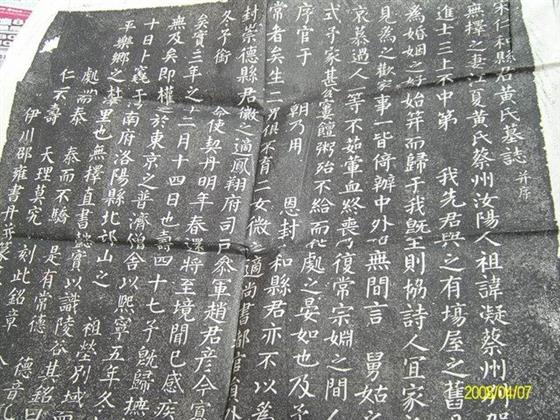 宋仁和縣君黃氏墓誌 并序
無擇之妻江夏黃氏蔡州汝陽人祖諱凝蔡州
進士三上不中第 我先君與之有場屋之舊
為婚姻之好始笄而歸于我既至則協詩人宜家
見為之歡宗事一皆倚辦中外無間言 舅姑
哀慕過人等不茹葷血終喪乃復常宗婣之間
式子家甚窶饘粥殆不給而處之晏如也及予
序官于 朝乃用 恩封仁和縣君亦不以為
常者矣生二男俱不育二女微之適尚書
封崇德縣君徽之適鳳翔府司戶叅軍趙君彥
冬予銜 命使契丹明年春還將至境聞已感疾
矣實三年之二月十四日也壽四十七子既歸撫
無及矣即權于東京之普濟僧舍以熙寧五年冬
十日卜襄于河南府洛陽縣北邙山之 祖塋別域
平樂鄉之里也無擇直書懿實以識陵谷其銘曰
處而泰 泰而不驕 是有常德 德音
仁不壽 天理莫究 刻此銘章
伊川邵雍書丹并篆
2008/04/07